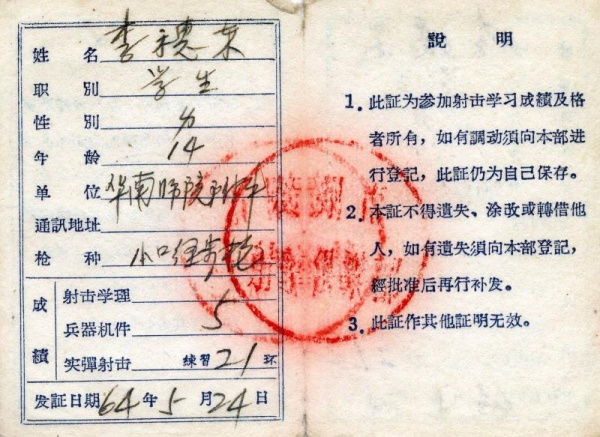 姓 名 李穗东
职 别 学生
性 别
年 龄 14
单 位 华南师院附中
通訊地址
枪 种 小口径步枪
成績
射击学理
兵器机件 5
实彈射击 練習 21 环
发証日期 64 年 5 月 24 日
說 明
1. 此証为参加射击学习成績及格
者所有，如有調动須向本部进
行登記，此証仍为自己保存。
2. 本証不得遺失、涂改或轉借他
人，如有遺失須向本部登記，
經批准后再行补发。
3. 此証作其他証明无效。